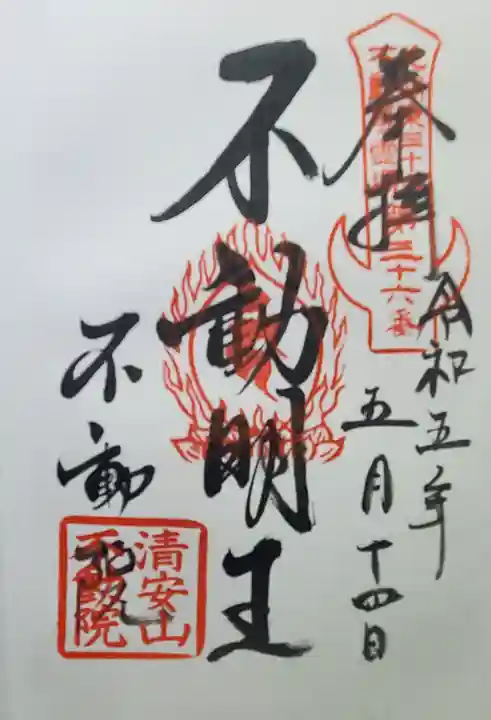 奉拝
令和五年
五月十四日
不動明王
不動院
清安山
不動院
第三十六番